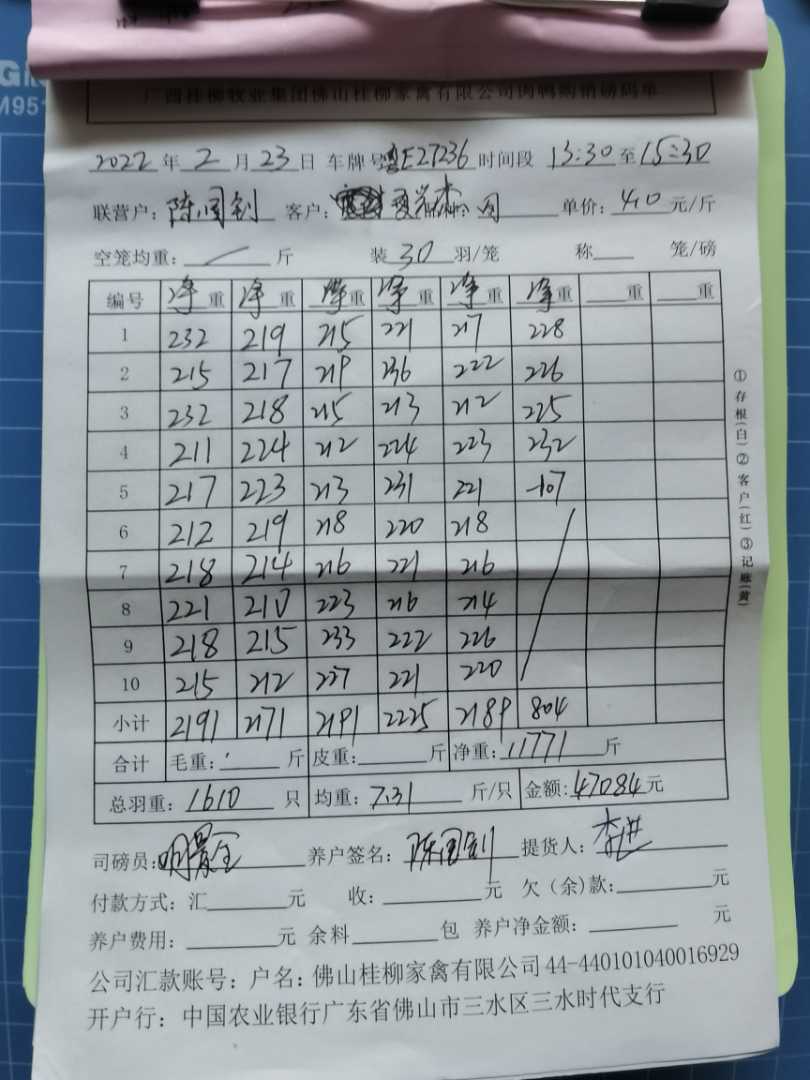 广西桂柳牧业集团佛山桂柳家禽有限公司肉鸭购销磅码单
2022 年 2 月 23 日 车牌号 粤E27236 时间段 13:30 至 15:30
联营户: 陈国钊 客户: 单价: 4.0 元/斤
空笼均重: / 斤 装 30 羽/笼 称 笼/磅
编号 净重 净重 净重 净重 净重 净重 重 重
1 232 219 215 221 217 228
2 215 217 219 236 222 226
3 232 218 215 213 212 225
4 211 224 212 224 223 232
5 217 223 213 231 221 -107
6 212 219 218 220 218
7 218 214 216 221 216
8 221 210 223 216 214
9 218 215 233 222 226
10 215 212 227 221 220
小计 2191 2171 2191 2225 2189 804
合计 毛重: 斤 皮重: 斤 净重: 11771 斤
总羽重: 1610 只 均重: 7.31 斤/只 金额: 47084 元
司磅员: 养户签名: 陈国钊 提货人:
付款方式: 汇 元 收: 元 欠(余)款: 元
养户费用: 元 余料 包 养户净金额: 元
公司汇款账号: 户名: 佛山桂柳家禽有限公司 44-440101040016929
开户行: 中国农业银行广东省佛山市三水区三水时代支行
①存根(白)②客户(红)③记账(黄)